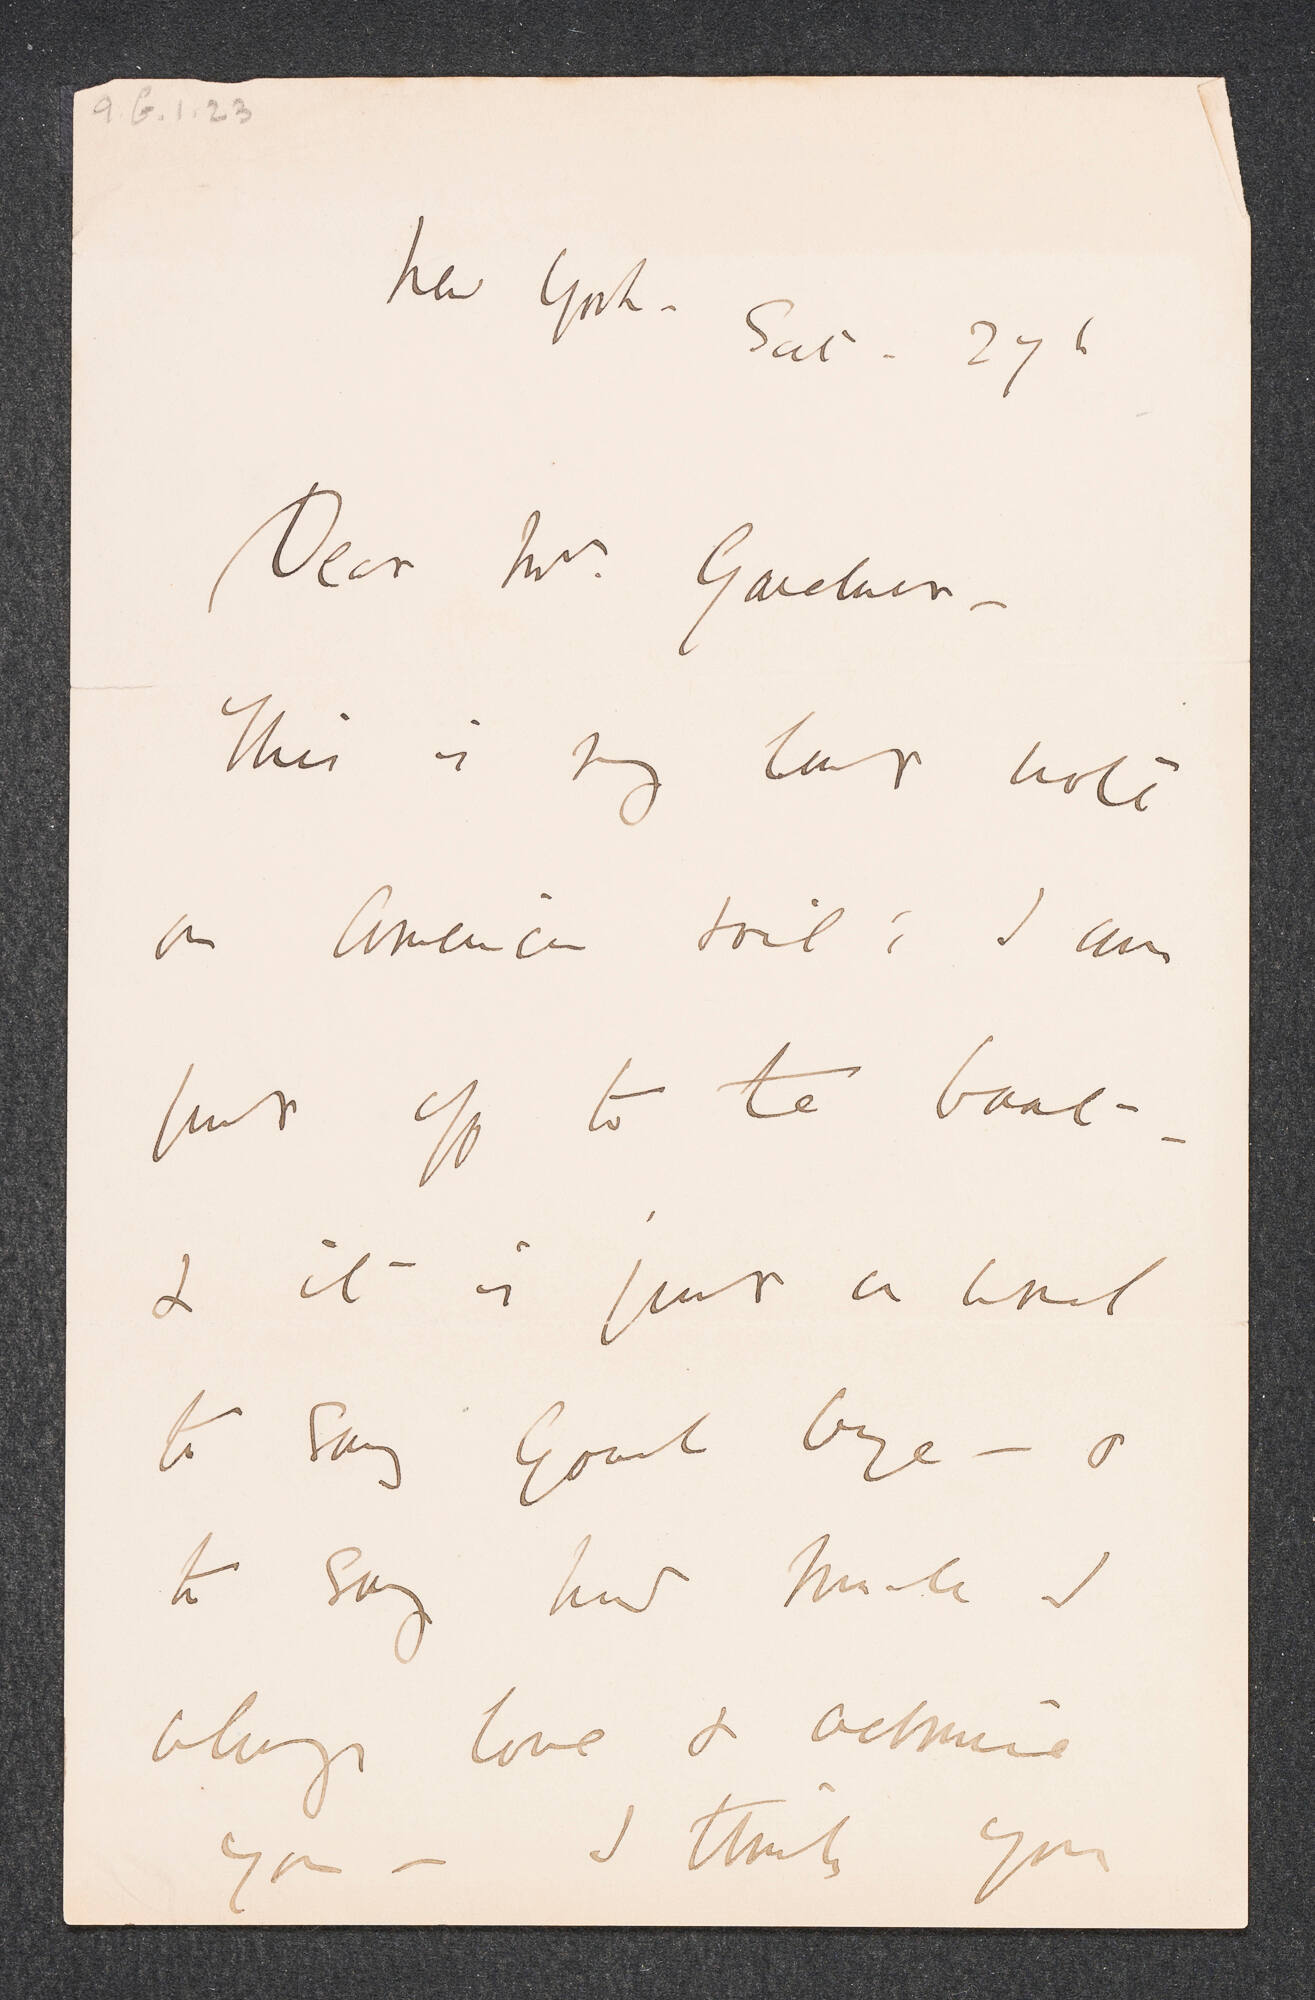 9.G.1.23
New York - Sat - 27th
Dear Mrs. Gardner -
This is my last note
on American soil: I am
just off to the boat -
& it is just a word
to say Good bye - &
to say how much I
always love & admire
you - I think you